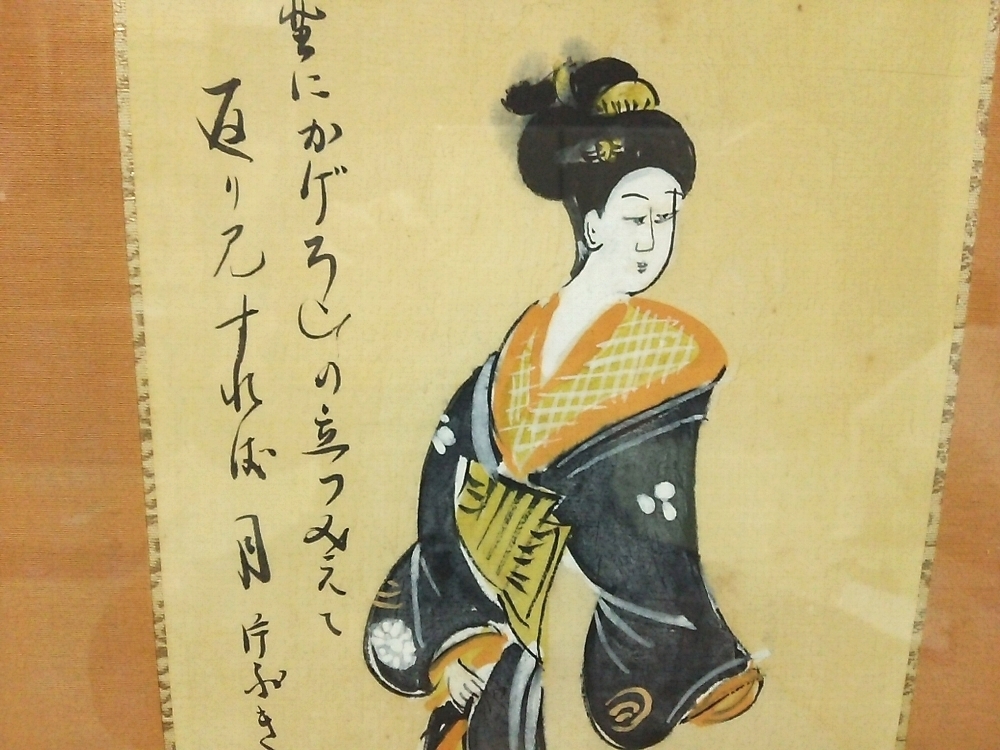 埜にかげろひの立つみえて
返り見すれば月片ぶき